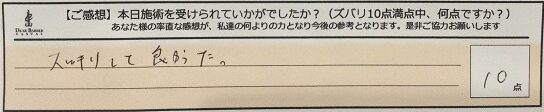 【ご感想】本日施術を受けられていかがでしたか？（ズバリ10点満点中、何点ですか？）
あなた様の率直な感想が、私達の何よりの力となり今後の参考となります。是非ご協力お願いします
DEAR BARBER
スッキリして良かった。
10点